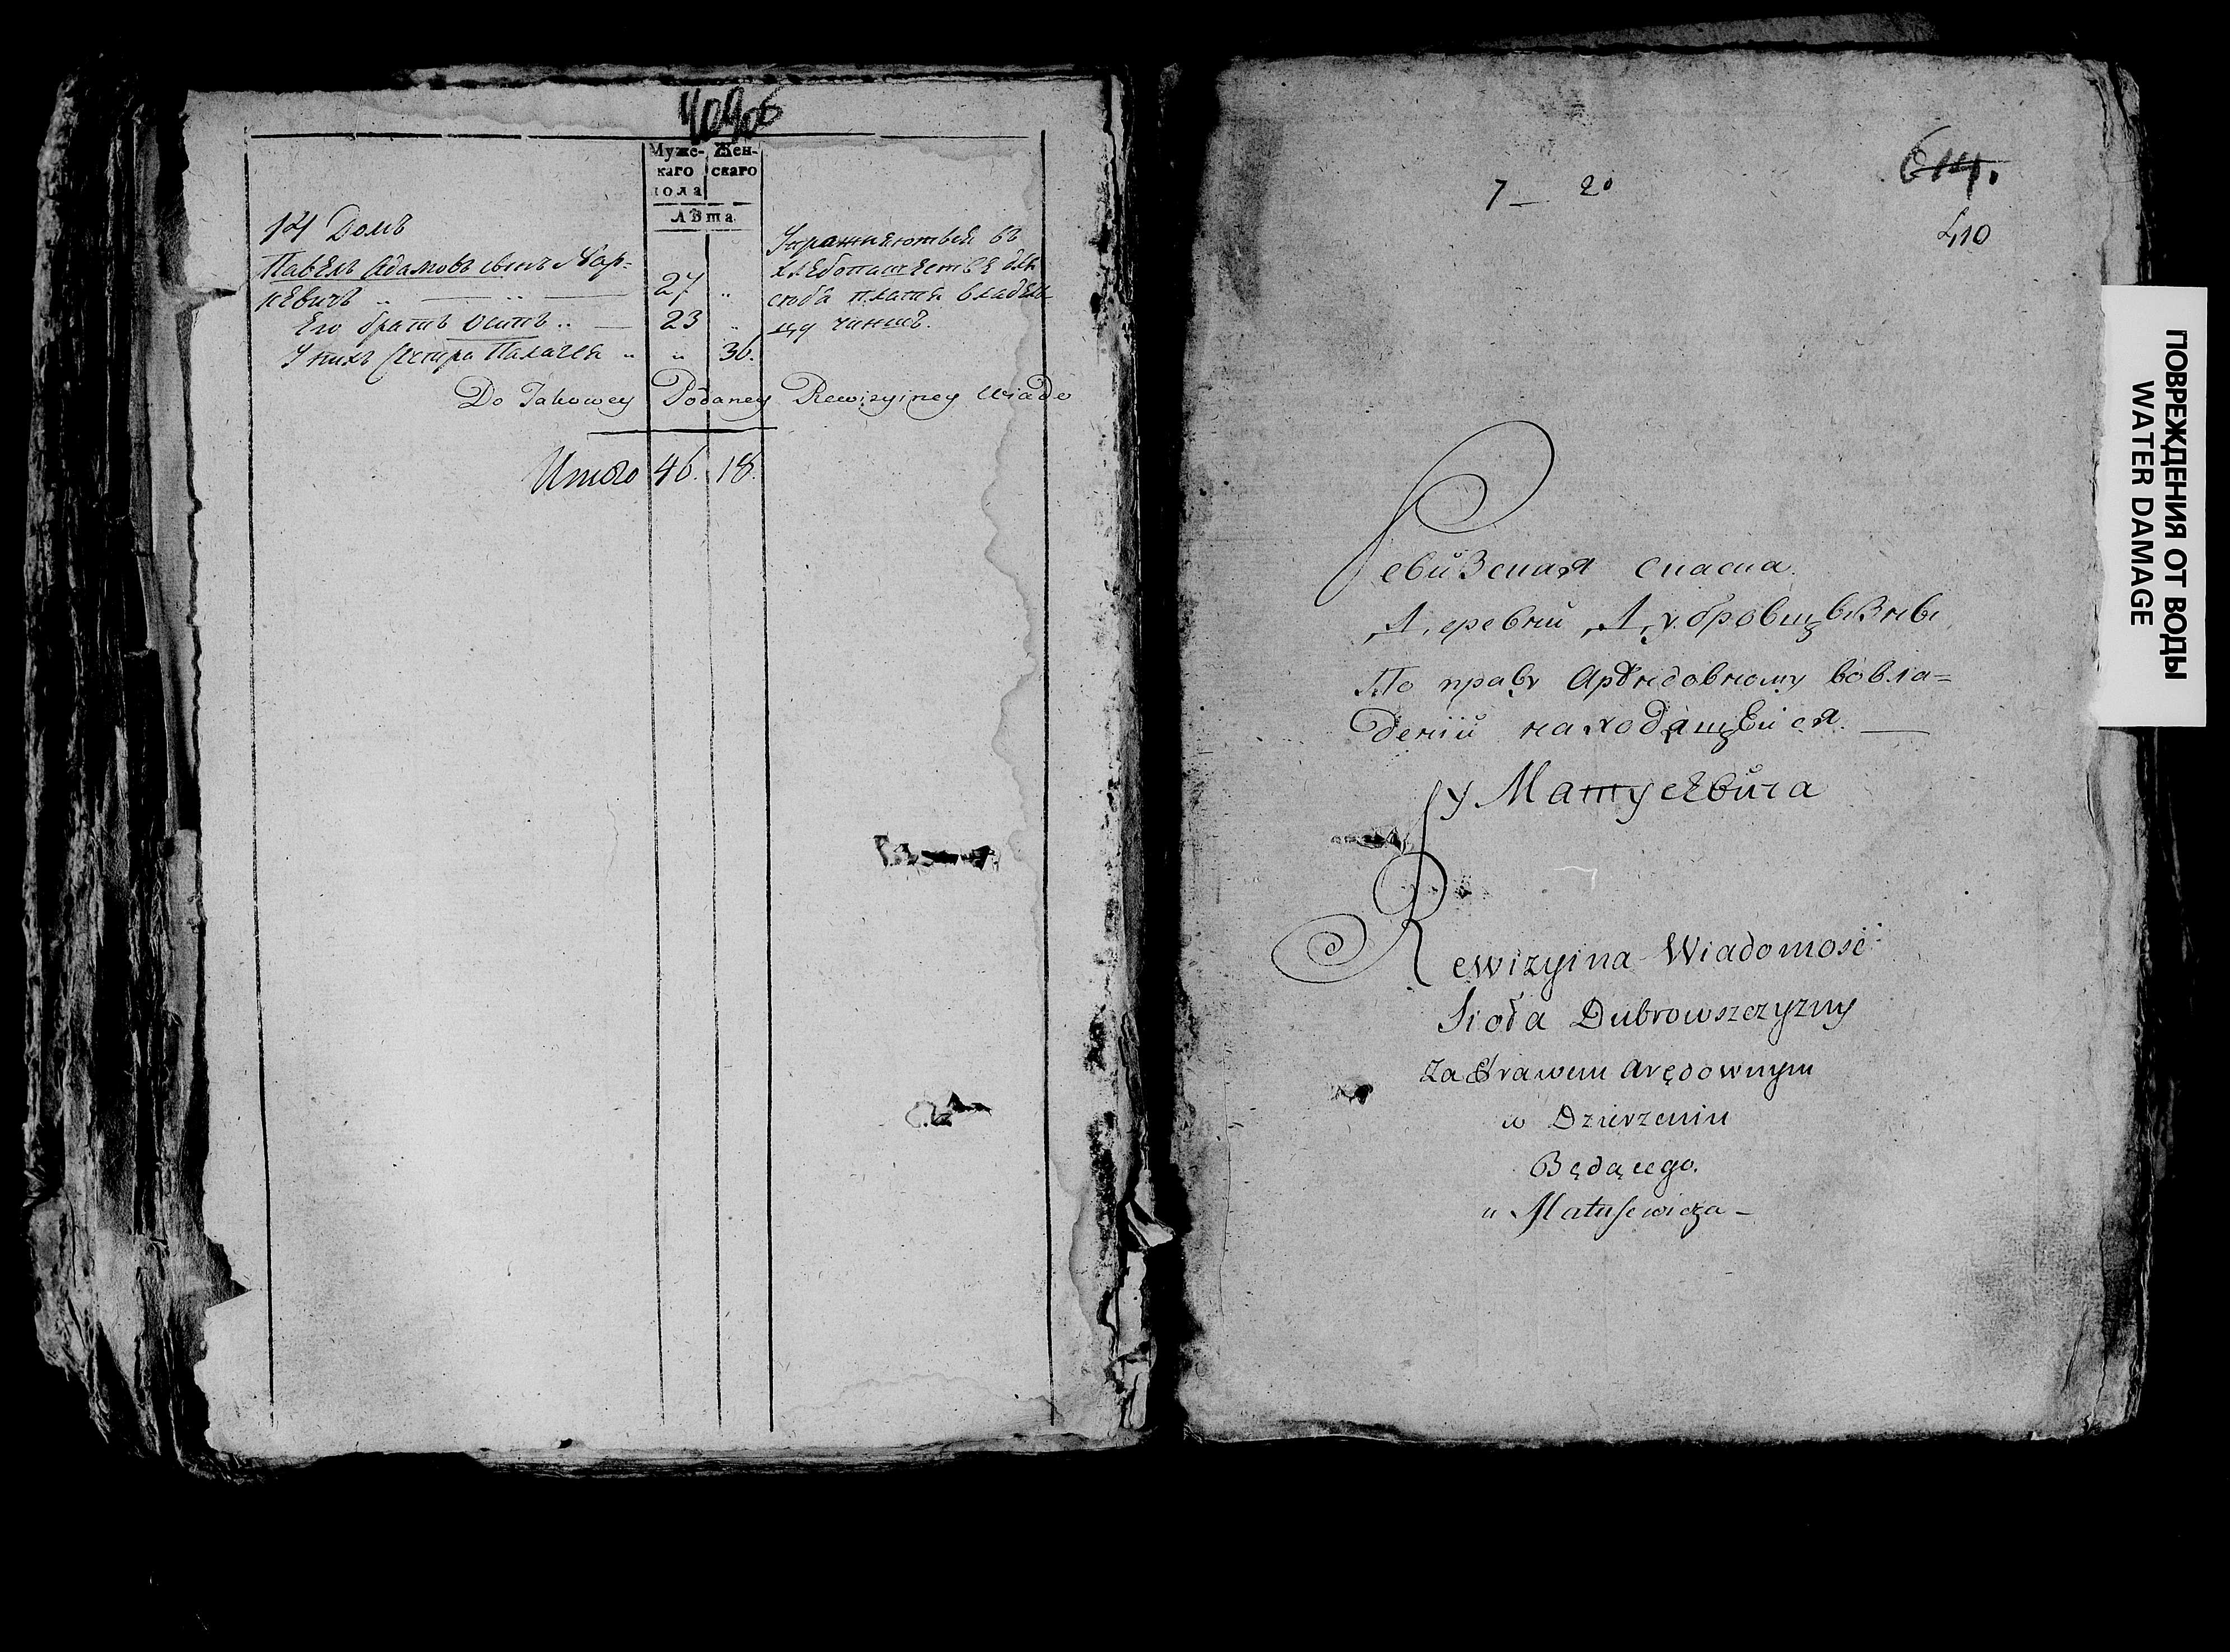 409об
Муже-
каго
пола
Жен-
скаго
Лѣта
14 Домъ
Павелъ Адамовъ сынъ Мар-
кевичъ 27
Его братъ Осипъ 23
У нихъ Сестра Палагея 36.
Упражняються въ
хлебопашестве для
себа платя владель-
цу чиншъ.
Do Takowey Podaney Rewizyiney Wiado
Итого 46. 18.
7 — 20
614.
410
Ревизская скаска
Деревни Дубровщызны
По праву Арендовному вовла=
дении находящейся —
у Матусевича
Rewizyina Wiadomość
Sioła Dubrowszczyzny
za Prawem arędownym
w Dzierzeniu
Będącego.
u Matusewicza —
ПОВРЕЖДЕНИЯ ОТ ВОДЫ
WATER DAMAGE